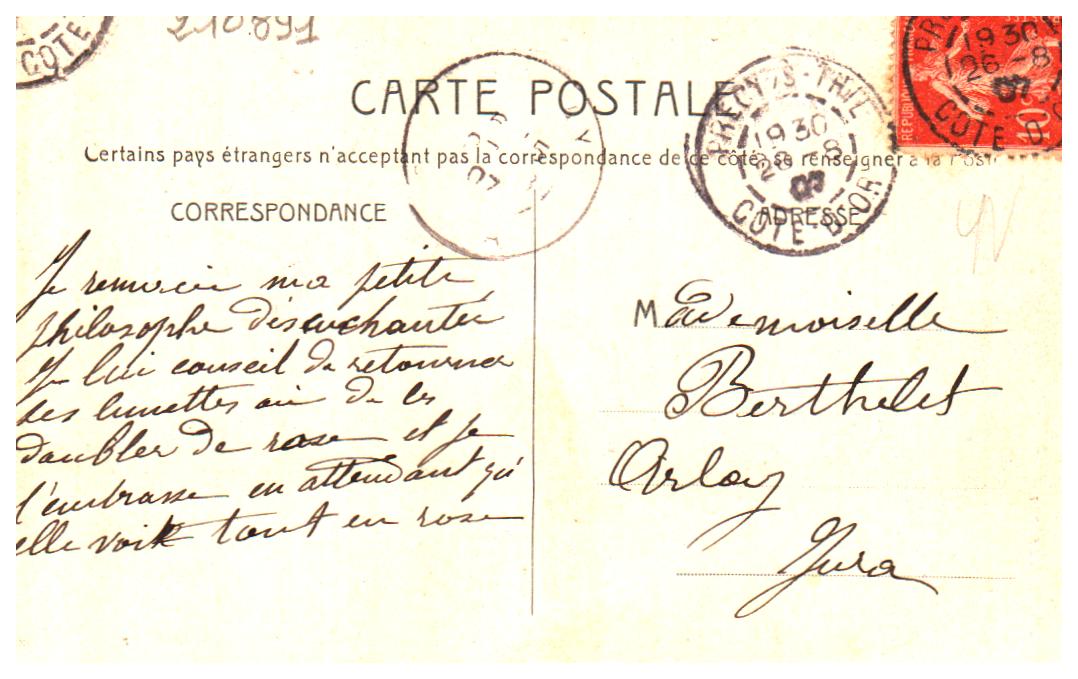 210891
COTE
CARTE POSTALE
Certains pays étrangers n'acceptant pas la correspondance de ce côté, se renseigner à la Post
CORRESPONDANCE
ADRESSE
PRECY-S-THIL
19 30
26 -8
07
COTE-D'OR
PR
19 30
26 -8
07
COTE D
REPUBLIQUE
10
07
Je remercie ma petite
philosophe désenchantée
Je lui conseil de retourner
ses lunettes ou de les
doubler de rose et je
l'embrasse en attendant qu'
elle voit tout en rose
Mademoiselle
Berthelet
Arlay
Jura